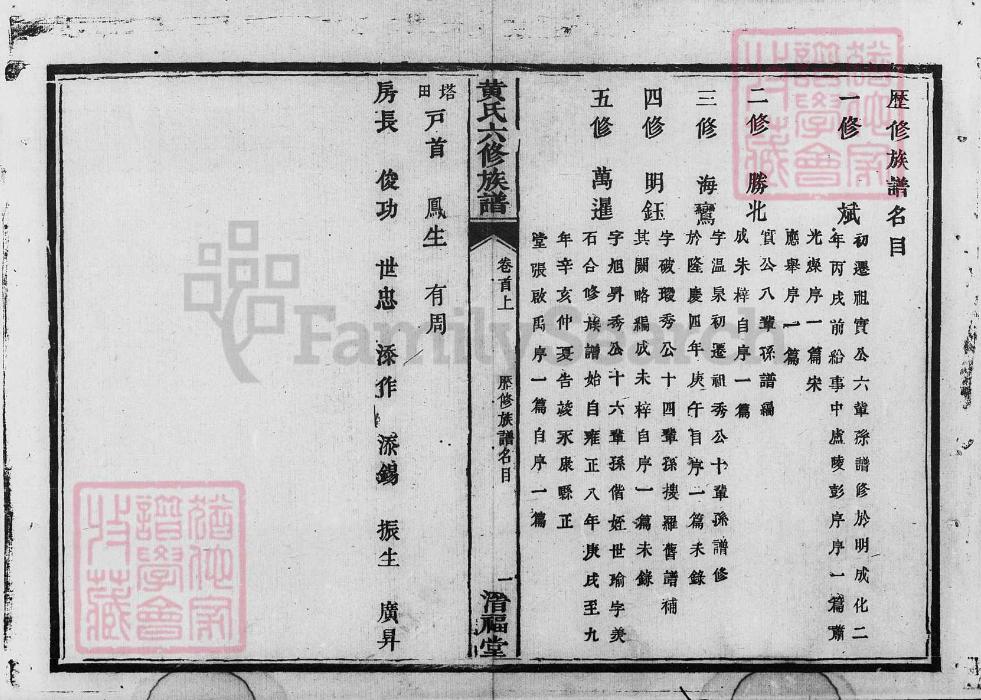 歷修族譜名目
一修 斌
初遷祖實公六輩孫譜修於明成化二
年丙戌前給事中盧陵彭序序一篇蕭
光燦序一篇宋
應舉序一篇
二修 勝北
實公八輩孫譜編
成朱梓自序一篇
三修 海鸞
字温泉初遷祖秀公十輩孫譜修
於隆慶四年庚午自序一篇未錄
四修 明鈺
字破瑕秀公十四輩孫搜羅舊譜補
其闕略編成未梓自序一篇未錄
五修 萬暹
字旭昇秀公十六輩孫偕姪世瑜字美
石合修族譜始自雍正八年庚戌至九
年辛亥仲夏告竣永康縣正
堂張啟禹序一篇自序一篇
黄氏六修族譜
卷首上
歷修族譜名目
一
滑福堂
塔田戸首 鳳生 有周
房長 俊功 世忠 添作 添錫 振生 廣昇
FamilySearch